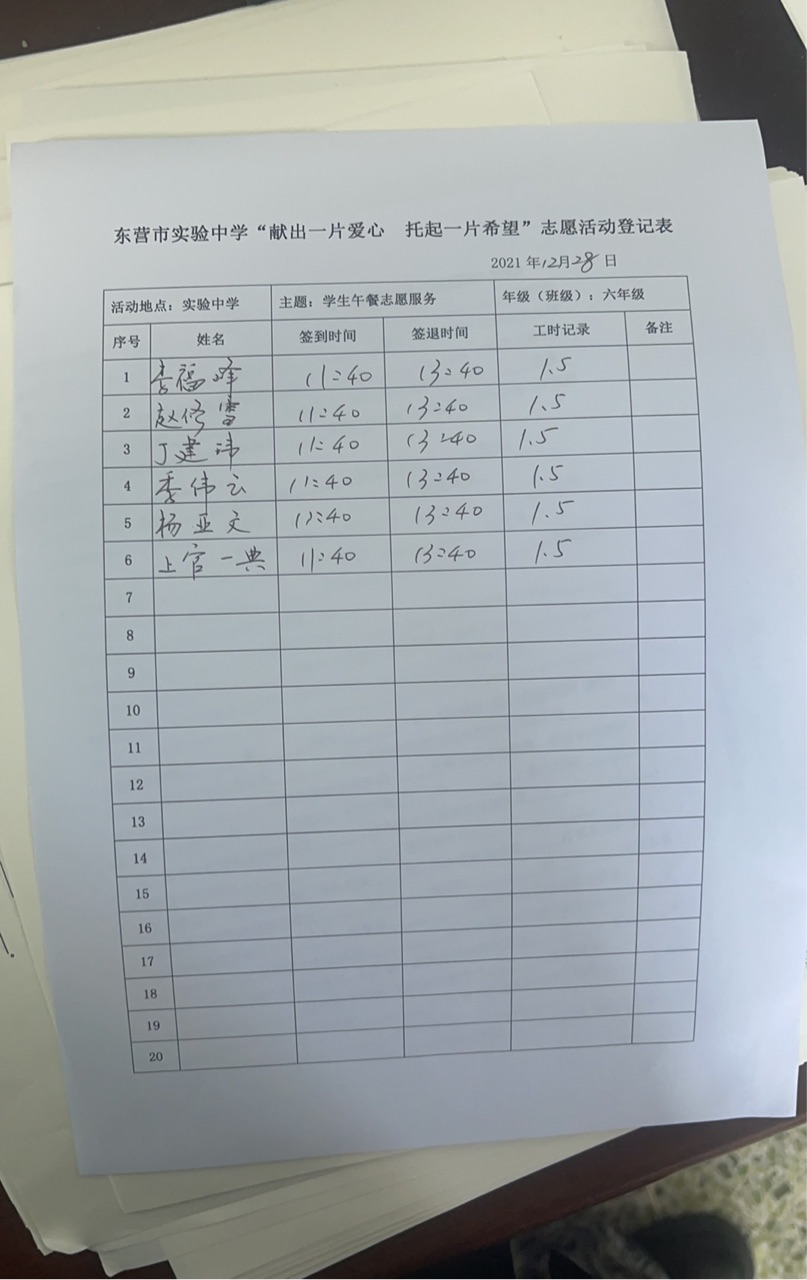 东营市实验中学“献出一片爱心 托起一片希望”志愿活动登记表
2021 年12月28日
活动地点：实验中学 主题：学生午餐志愿服务 年级（班级）：六年级
序号 姓名 签到时间 签退时间 工时记录 备注
1 李福峰 11:40 13:40 1.5
2 赵修雪 11:40 13:40 1.5
3 丁建沛 11:40 13:40 1.5
4 季伟云 11:40 13:40 1.5
5 杨亚文 11:40 13:40 1.5
6 上官一典 11:40 13:40 1.5
7
8
9
10
11
12
13
14
15
16
17
18
19
20